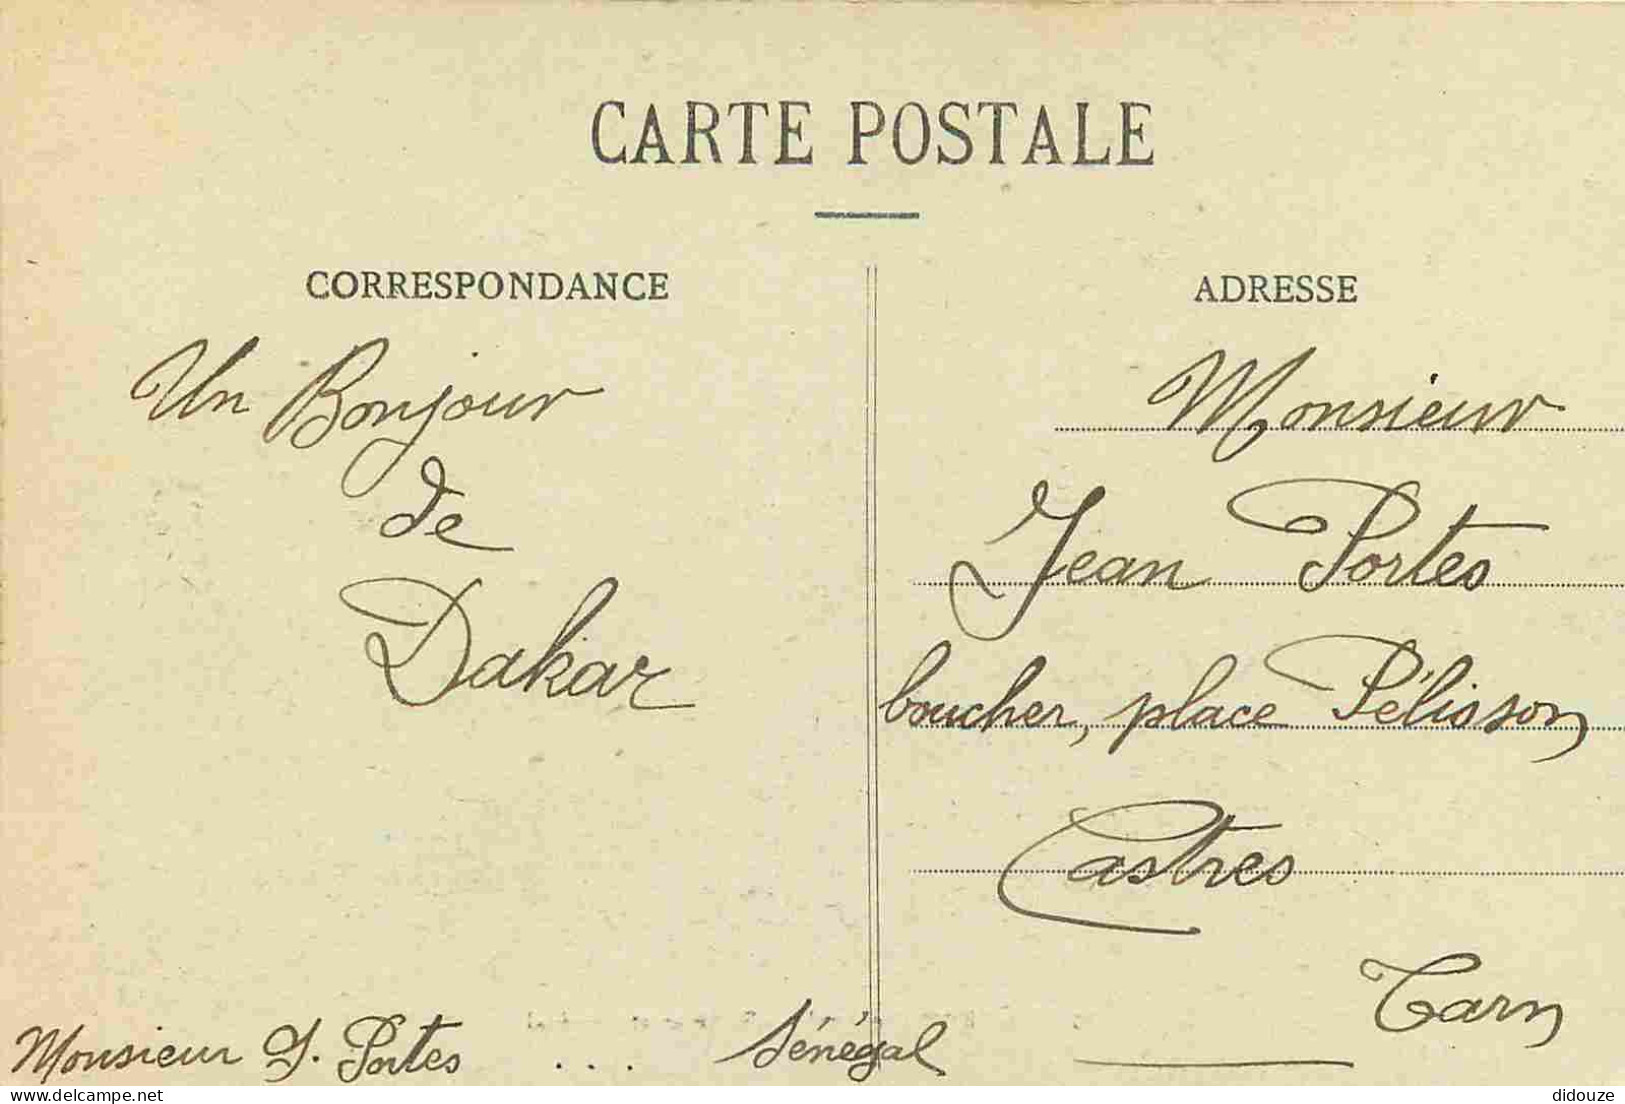 CARTE POSTALE
CORRESPONDANCE
Un Bonjour
de
Dakar
ADRESSE
Monsieur
Jean Portes
boucher, place Pélisson
Castres
Tarn
Monsieur J. Portes ... Sénégal
didouze